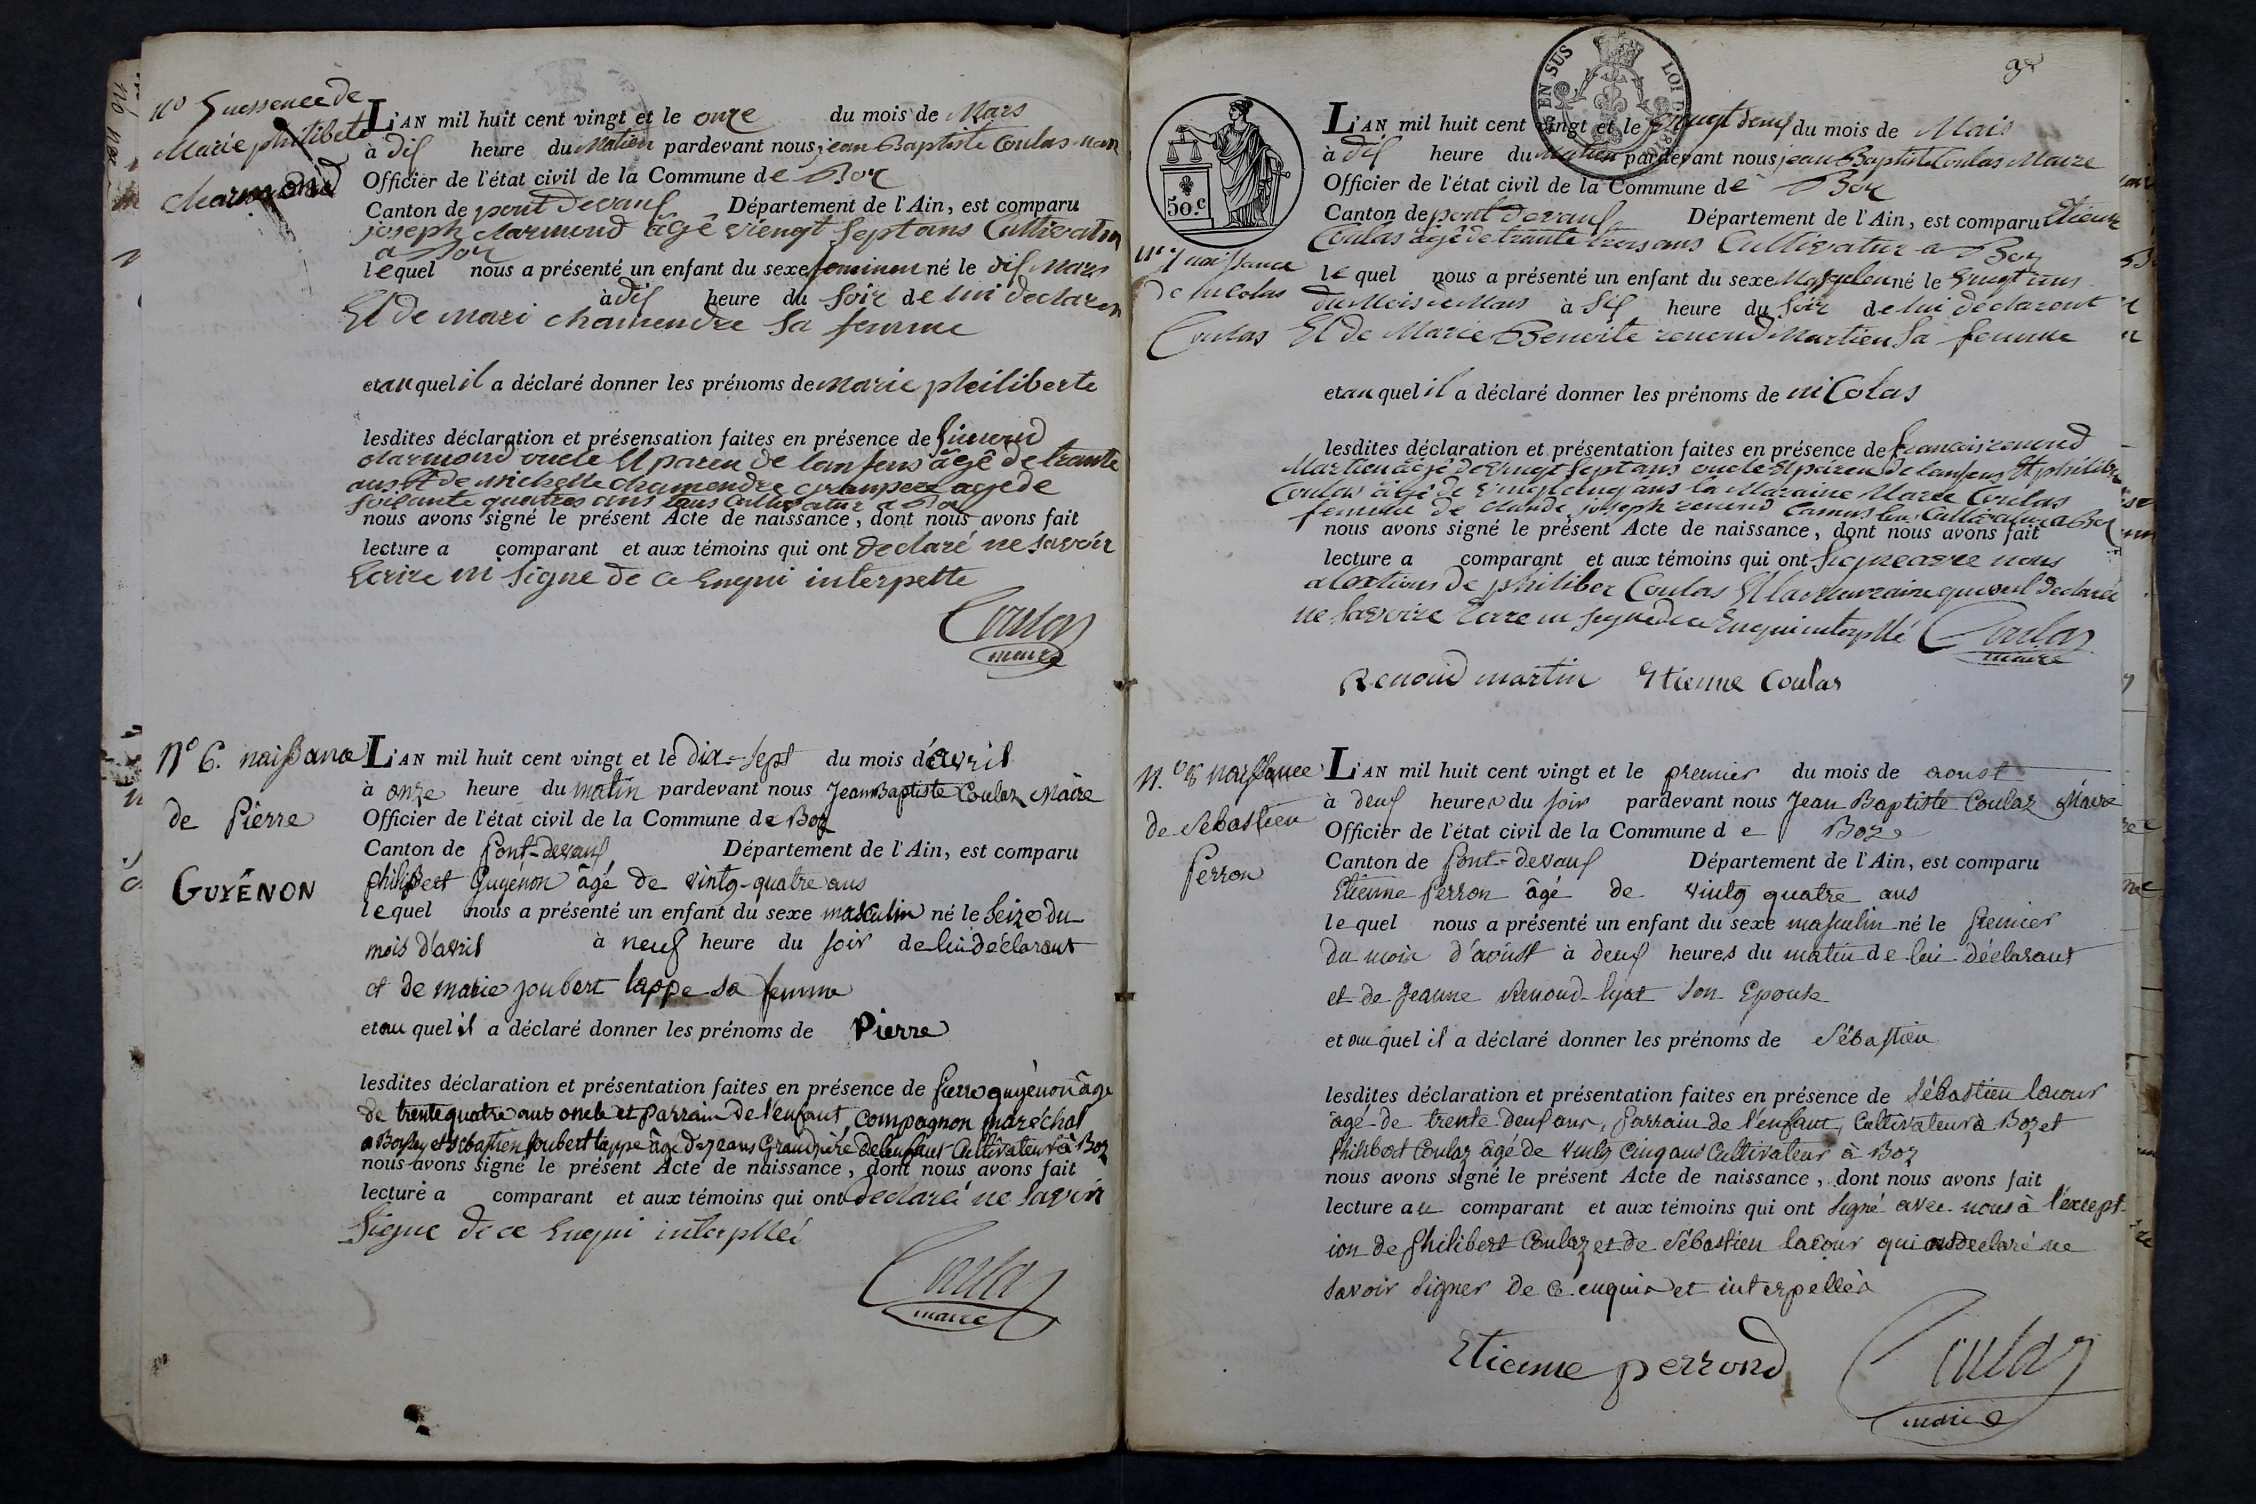 Marie philiberte
charmond
L'AN mil huit cent vingt et le onze du mois de Mars
à dix heure du Matien pardevant nous, jean Baptiste Coulas mair
Officier de l'état civil de la Commune de Boz
Canton de pont devaux Département de l'Ain, est comparu
joseph charmond âgé viengt Sept ans Cultivatur
a Boz
lequel nous a présenté un enfant du sexe feminin né le dix Mars
à dix heure du Soir de lui declaren
Et de mari chamendre Sa femme
et au quel il a déclaré donner les prénoms de marie pheiliberte
lesdites déclaration et présensation faites en présence de
charmond oncle Et paren de lanfens âgé de trante
ans Et de michelle chamendre agé de
Soisante quatres ans tous Cultivatur a Boz
nous avons signé le présent Acte de naissance, dont nous avons fait
lecture a comparant et aux témoins qui ont declaré ne Savoir
Ecrire ni Signe de ce Enqui interpette
Coulas
maire
N° 6. naissance
de Pierre
GUYÉNON
L'AN mil huit cent vingt et le dix-Sept du mois d'avril
à onze heure du matin pardevant nous Jean Baptiste Coulaz Maire
Officier de l'état civil de la Commune de Boz
Canton de Pont-devaux Département de l'Ain, est comparu
philibert Guyenon âgé de vintg-quatre ans
lequel nous a présenté un enfant du sexe masculin né le Seize du
mois d'avril à neuf heure du soir de lui déclarant
et de marie joubert lappe sa femme
et au quel il a déclaré donner les prénoms de Pierre
lesdites déclaration et présentation faites en présence de Pierre guyénon âgé
de trente quatre ans oncle et Parrain de l'enfant, compagnon maréchal
et Sébastien Joubert lappe âgé de ans Grand père de l'enfant Cultivateur à Boz
nous avons signé le présent Acte de naissance, dont nous avons fait
lecture a comparant et aux témoins qui ont declaré ne Savoir
Signe de ce Enqui interpllé
Coulas
maire
EN SUS
LOI DE 1816
50.c
N° 7 naissance
De nicolas
Coulas
L'AN mil huit cent vingt et le Vingt deux du mois de Mars
à dix heure du Matien pardevant nous jean Baptiste Coulas Maire
Officier de l'état civil de la Commune de Boz
Canton de pont devaux Département de l'Ain, est comparu Etienne
Coulas âgé de trante trois ans Cultivatur a Boz
le quel nous a présenté un enfant du sexe Masqulen né le Vingt uns
du Mois de Mars à Six heure du Soir de lui declarent
Et de Marie Benoite renoud Martien Sa femme
et au quel il a déclaré donner les prénoms de niColas
lesdites déclaration et présentation faites en présence de francois renoud
Martien âgé de Vingt Sept ans oncle Et paren de lanfens Et philiber
Coulas âgé de Vingt cinq ans la Maraine Marie Coulas
femme de claude joseph renoud Cultivatur a Boz
nous avons signé le présent Acte de naissance, dont nous avons fait
lecture a comparant et aux témoins qui ont Signe avec nous
de philiber Coulas Et la maraine qui ont declaré
ne Savoire Ecire ni signe de ce Enqui interpllé
Coulas
maire
Renoud martin Etienne Coulas
N.° 8 naissance
de Sébastien
Perron
L'AN mil huit cent vingt et le premier du mois de aoust
à deux heures du soir pardevant nous Jean Baptiste Coulaz Maire
Officier de l'état civil de la Commune de Boz
Canton de Pont-devaux Département de l'Ain, est comparu
Etienne Perron âgé de vintg quatre ans
le quel nous a présenté un enfant du sexe masculin né le Premier
du mois d'aoust à deux heures du matin de lui déclarant
et de Jeanne Renoud-lyat son Epouse
et au quel il a déclaré donner les prénoms de Sébastien
lesdites déclaration et présentation faites en présence de Sébastien lacour
agé de trente deux ans, Parrain de l'enfant, Cultivateur à Boz et
Philibert Coulaz âgé de vintg Cinq ans Cultivateur à Boz
nous avons signé le présent Acte de naissance, dont nous avons fait
lecture au comparant et aux témoins qui ont signé avec nous à l'except-
ion de Philibert Coulaz et de Sébastien lacour qui ont declaré ne
savoir signer de ce enquis et interpellés
Etienne perrond
Coulaz
maire